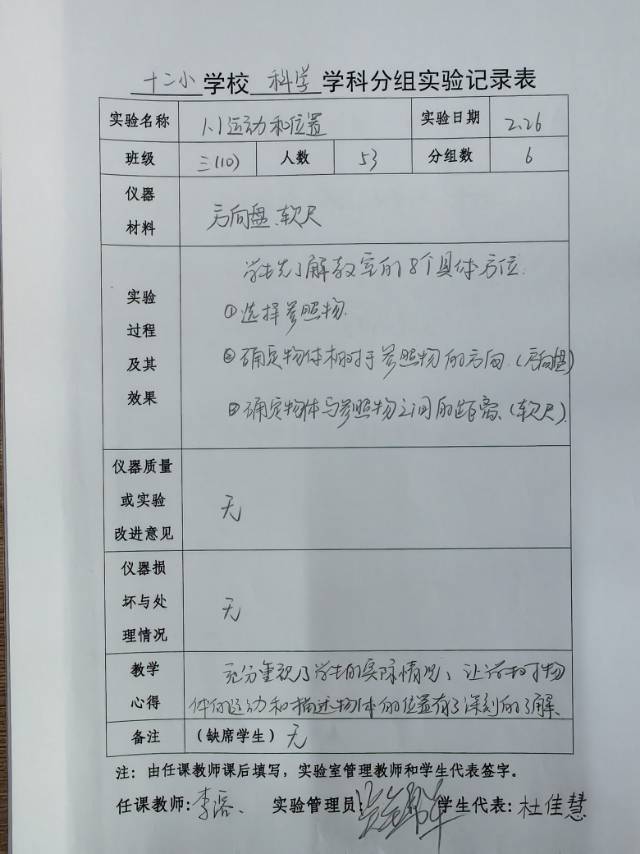 十二小学校 科学 学科分组实验记录表
实验名称 1.1运动和位置 实验日期 2.26
班级 三(10) 人数 53 分组数 6
仪器材料 方向盘、软尺
实验过程及其效果
学生先了解教室的8个具体方位.
①选择参照物.
②确定物体相对于参照物的方向.(方向盘)
③确定物体与参照物之间的距离.(软尺).
仪器质量或实验改进意见 无
仪器损坏与处理情况 无
教学心得
充分重视了学生的实际情况、让学生对物
体的运动和描述物体的位置有了深刻的了解、
备注 (缺席学生) 无
注：由任课教师课后填写，实验室管理教师和学生代表签字。
任课教师: 李 实验管理员: 学生代表: 杜佳慧